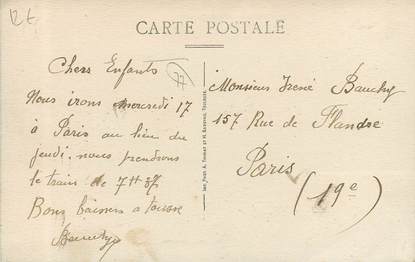 12 €
CARTE POSTALE
77
Chers Enfants
Nous irons mercredi 17
à Paris au lieu du
jeudi. nous prendrons
le train de 7H 37
Bons baisers a tousse
Bauchy
Monsieur Irené Bauchy
157 Rue de Flandre
Paris
(19e)